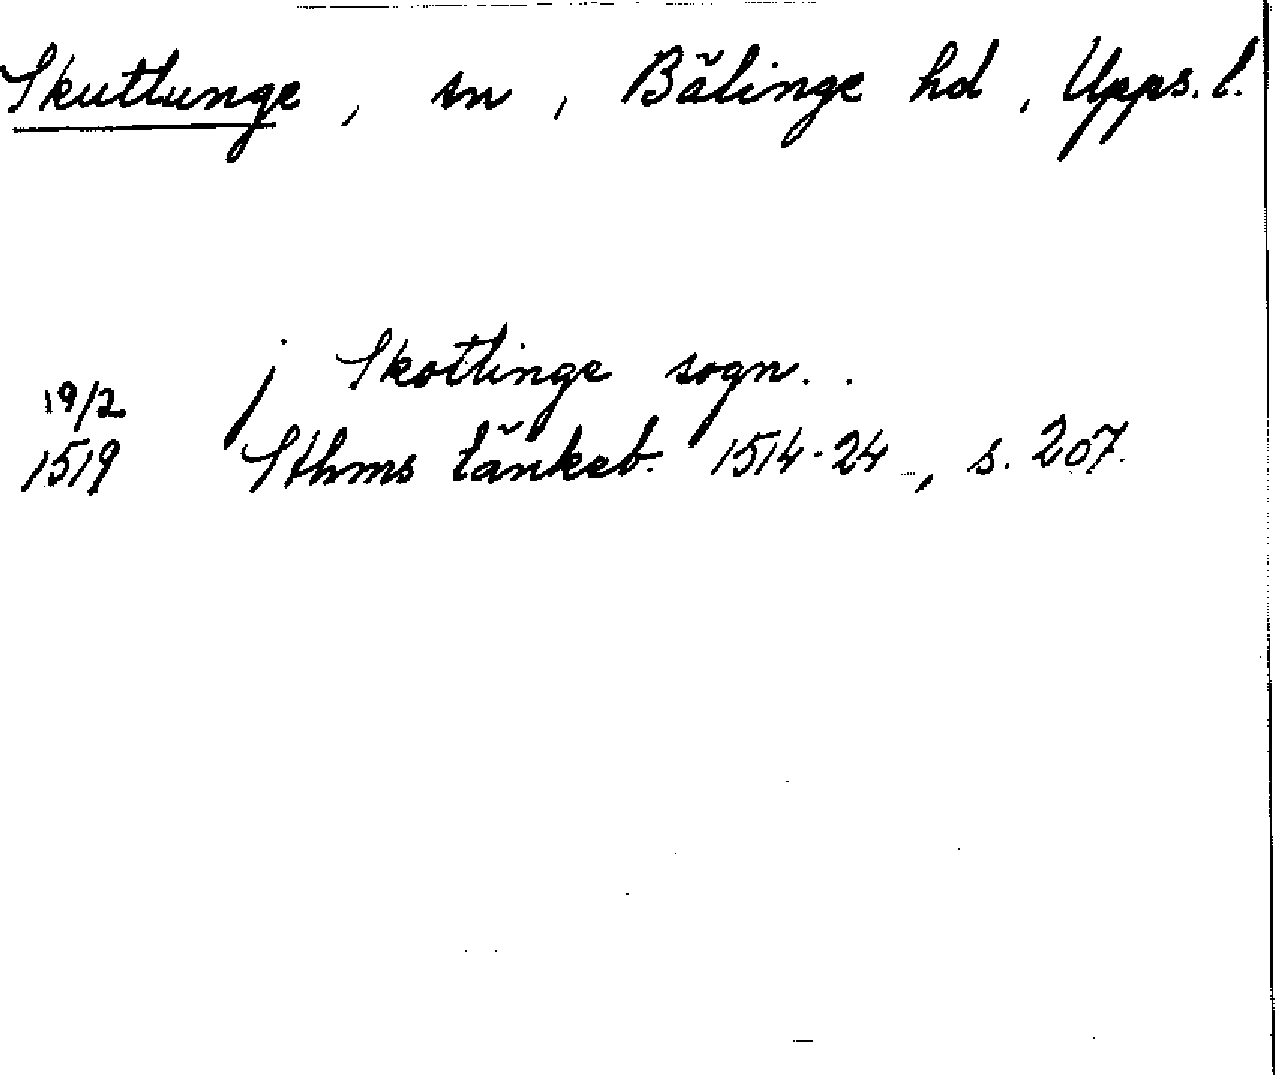 Skuttunge, sn, Bälinge hd, Upps. l.
j Skottinge sogn..
19/2
1519 Sthms tänkeb. 1514-24, s. 207.